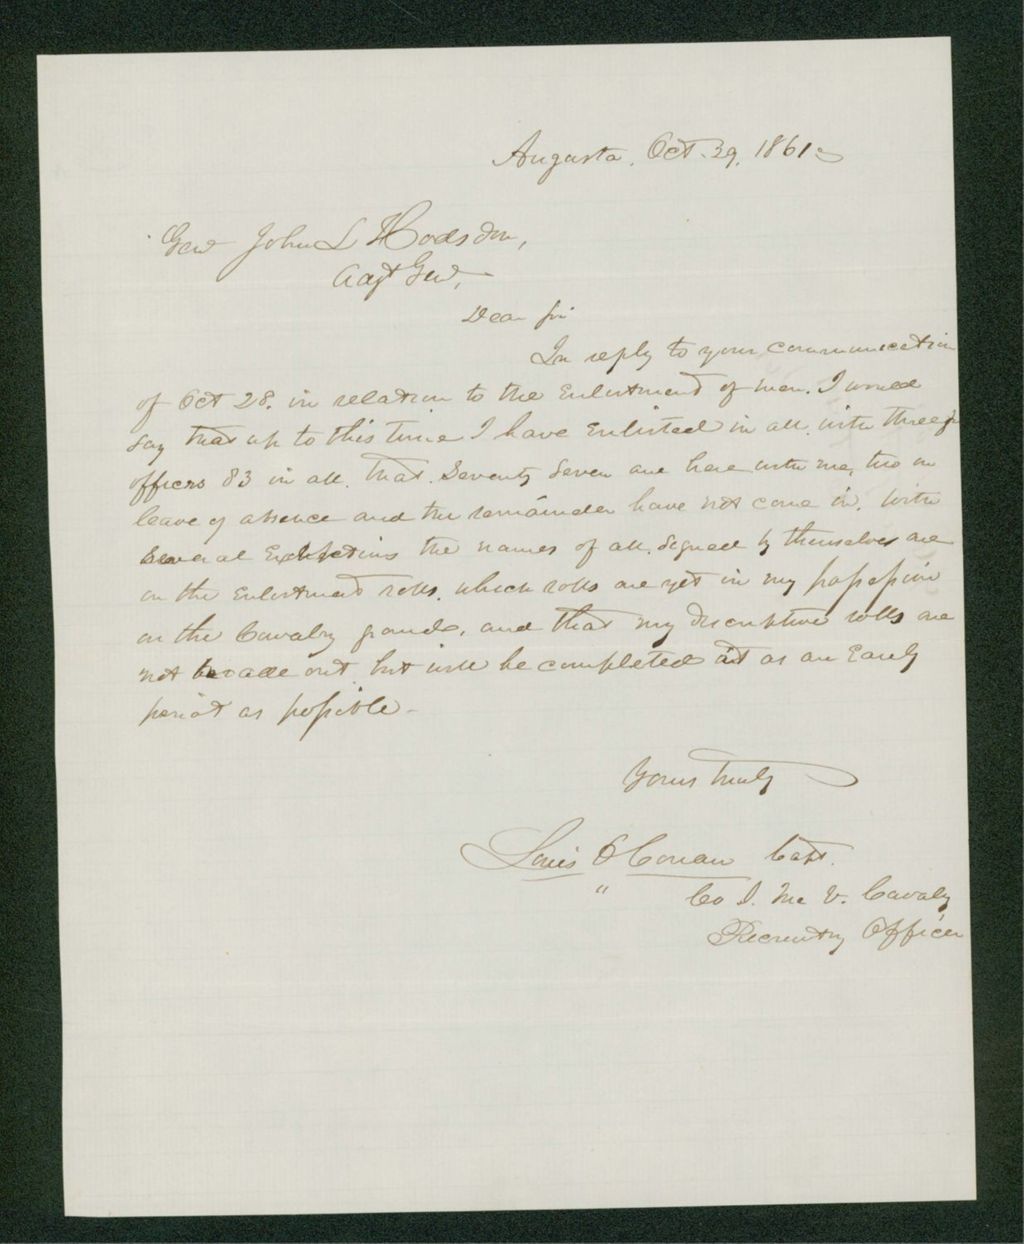 Augusta. Oct. 29. 1861
Genl John L Hodsdon,
Adjt Genl,
Dear Sir
In reply to your communication
of Oct 28. in relation to the Enlistment of men. I would
say that up to this time I have Enlisted in all with three
officers 83 in all. that Seventy Seven are here with me, two on
leave of absence and the remainder have not come in. With
several the names of all signed by themselves are
on the Enlistment rolls. which rolls are yet in my possession
on the Cavalry grounds, and that my descriptive rolls are
not made out but will be completed at as an Early
period as possible -
Yours truly
Louis O Cowan Capt.
" Co I. Me V. Cavalry
Recruiting Officer